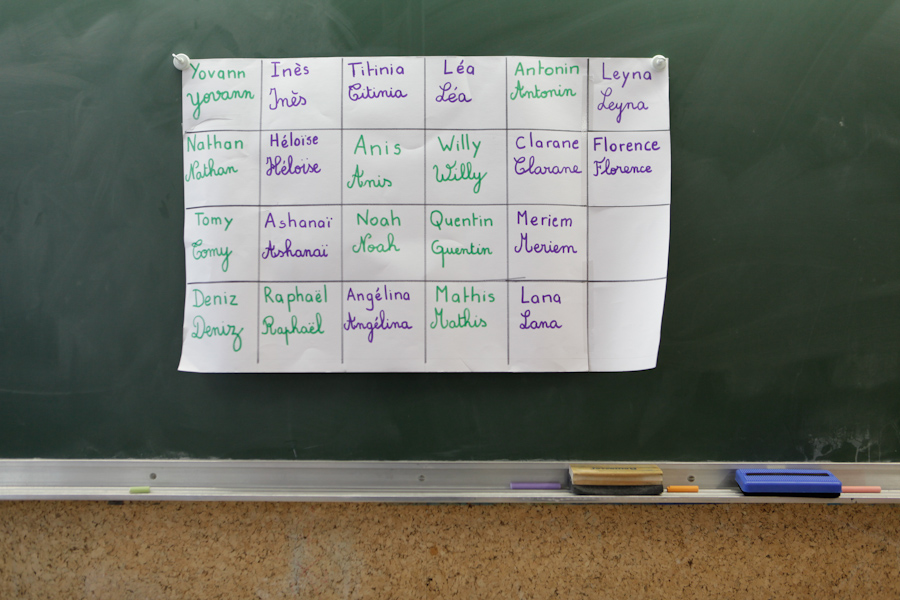 Yovann Inès Titinia Léa Antonin Leyna
Yovann Inès Titinia Léa Antonin Leyna
Nathan Héloïse Anis Willy Clarane Florence
Nathan Héloïse Anis Willy Clarane Florence
Tomy Ashanaï Noah Quentin Meriem
Tomy Ashanaï Noah Quentin Meriem
Deniz Raphaël Angélina Mathis Lana
Deniz Raphaël Angélina Mathis Lana